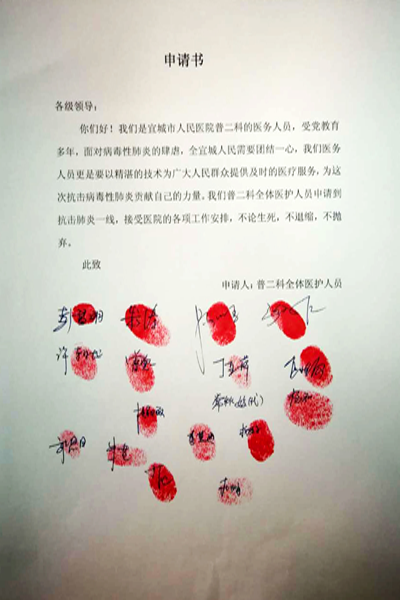 申请书
各级领导：
你们好！我们是宜城市人民医院普二科的医务人员，受党教育
多年，面对病毒性肺炎的肆虐，全宜城人民需要团结一心，我们医务
人员更是要以精湛的技术为广大人民群众提供及时的医疗服务，为这
次抗击病毒性肺炎贡献自己的力量。我们普二科全体医护人员申请到
抗击肺炎一线，接受医院的各项工作安排，不论生死，不退缩，不抛
弃。
此致
申请人：普二科全体医护人员